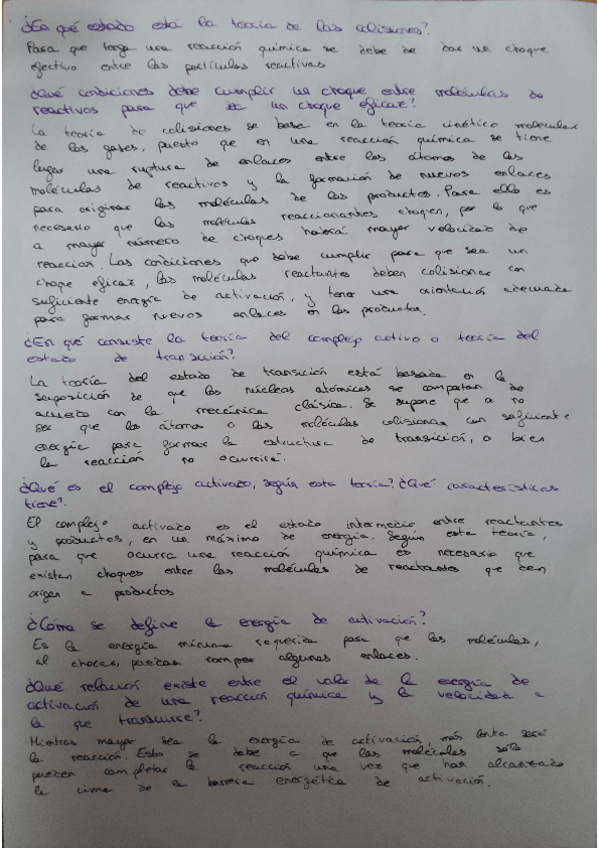 ¿En qué estado está la teoría de las colisiones?
Para que tenga una reacción química se debe de dar un choque
efectivo entre las partículas reactivas
¿Qué condiciones debe cumplir un choque entre moléculas de
reactivos para que sea un choque eficaz?
La teoría de colisiones se base en la teoría cinético molecular
de los gases, puesto que en una reacción química se tiene
lugar una ruptura de enlaces entre los átomos de las
moléculas de reactivos y la formación de nuevos enlaces
para originar las moléculas de los productos. Para ello es
necesario que las moléculas reaccionantes choquen, por lo que
a mayor número de choques habrá mayor velocidad de
reacción. Las condiciones que debe cumplir para que sea un
choque eficaz, las moléculas reactantes deben colisionar con
suficiente energía de activación, y tener una orientación adecuada
para formar nuevos enlaces en los productos.
¿En qué consiste la teoría del complejo activo o teoría del
estado de transición?
La teoría del estado de transición está basada en la
suposición de que los núcleos atómicos se comportan de
acuerdo con la mecánica clásica. Se supone que a no
ser que los átomos o las moléculas colisionan con suficiente
energía para formar la estructura de transición, o bien
la reacción no ocurrirá.
¿Qué es el complejo activado, según esta teoría? ¿Qué características
tiene?
El complejo activado es el estado intermedio entre reactantes
y productos, en un máximo de energía. Según esta teoría,
para que ocurra una reacción química es necesario que
existan choques entre las moléculas de reactantes que den
origen a productos
¿Cómo se define la energía de activación?
Es la energía mínima requerida para que las moléculas,
al chocar, puedan romper algunos enlaces.
¿Qué relación existe entre el valor de la energía de
activación de una reacción química y la velocidad a
la que transcurre?
Mientras mayor sea la energía de activación, más lenta será
la reacción. Esto se debe a que las moléculas sólo
pueden completar la reacción una vez que han alcanzado
la cima de la barrera energética de activación.